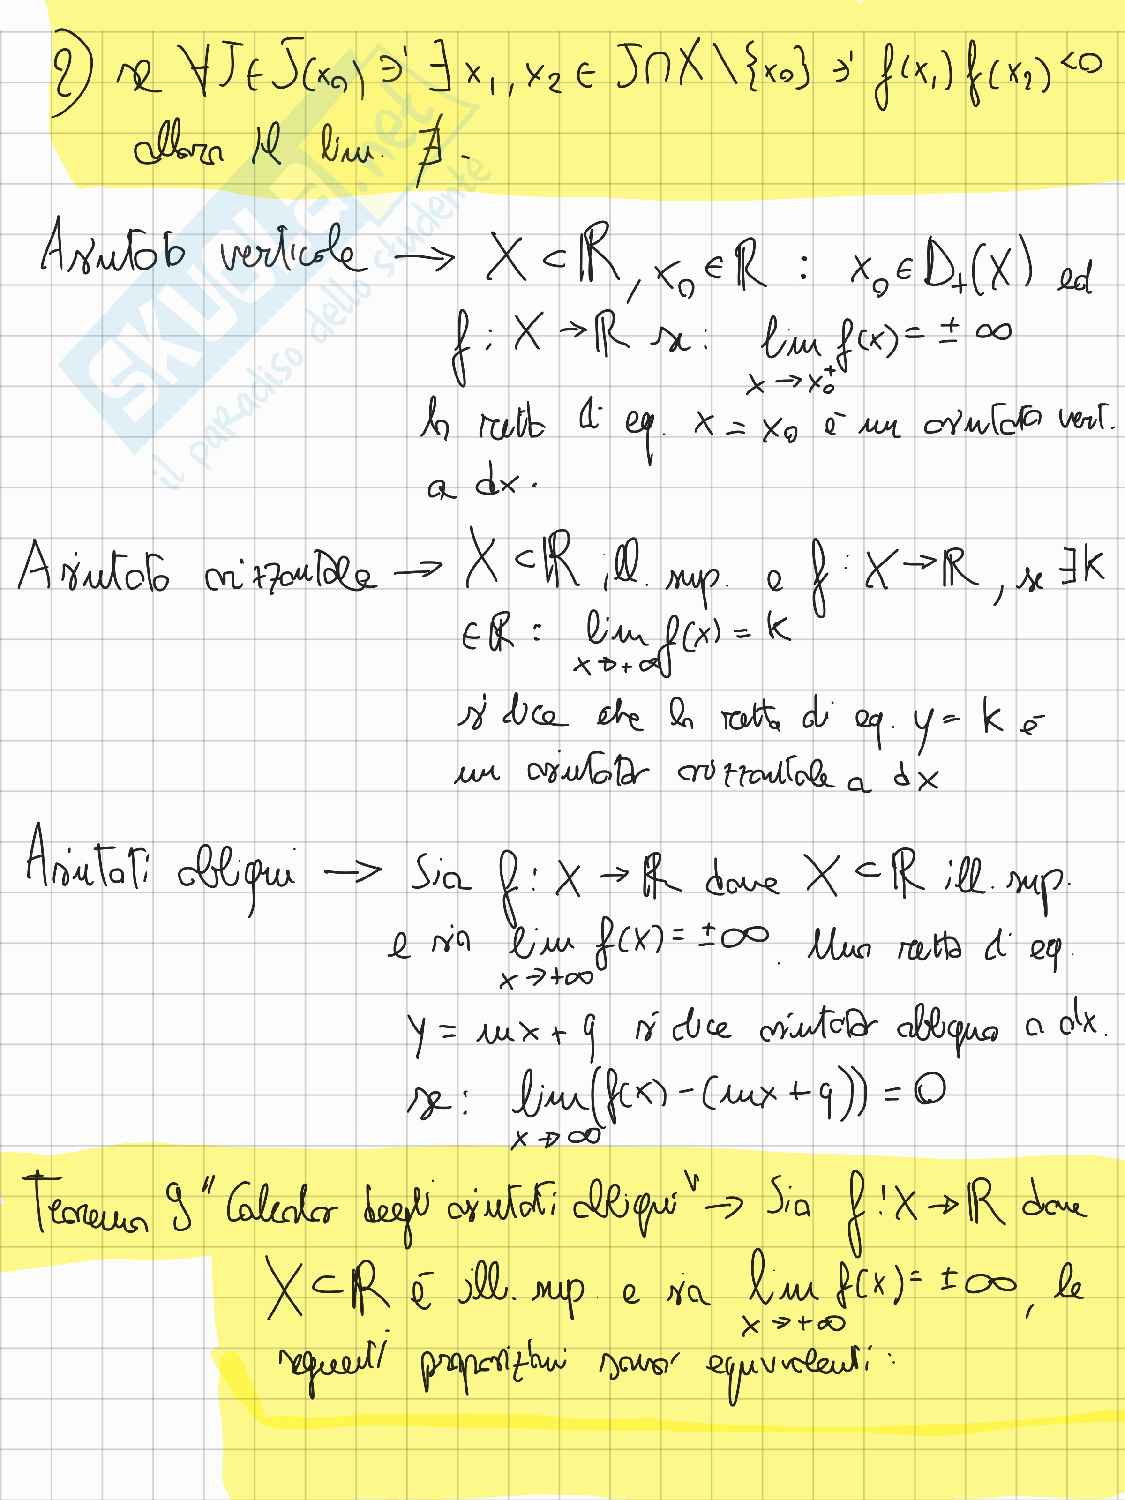 2) se ∀J∈J(x₀) ∋' ∃ x₁, x₂ ∈ J∩X\{x₀} ∋' f(x₁) f(x₂) <0
allora il lim. ∄.
Asintoto verticale → X ⊂ ℝ, x₀ ∈ ℝ : x₀ ∈ D₊(X) ed
f : X → ℝ se : lim f(x) = ± ∞
x → x₀⁺
la retta di eq. x = x₀ è un asintoto vert.
a dx.
Asintoto orizzontale → X ⊂ ℝ ill. sup. e f : X → ℝ, se ∃ k
∈ ℝ : lim f(x) = k
x → +∞
si dice che la retta di eq. y = k è
un asintoto orizzontale a dx
Asintoti obliqui → Sia f : X → ℝ dove X ⊂ ℝ ill. sup.
e sia lim f(x) = ±∞. Una retta di eq.
x → +∞
y = mx + q si dice asintoto obliquo a dx.
se : lim (f(x) - (mx + q)) = 0
x → ∞
Teorema 9 "Calcolo degli asintoti obliqui" → Sia f : X → ℝ dove
X ⊂ ℝ è ill. sup. e sia lim f(x) = ± ∞, le
x → +∞
seguenti proposizioni sono equivalenti :
SKUOLA.net
il paradiso dello studente